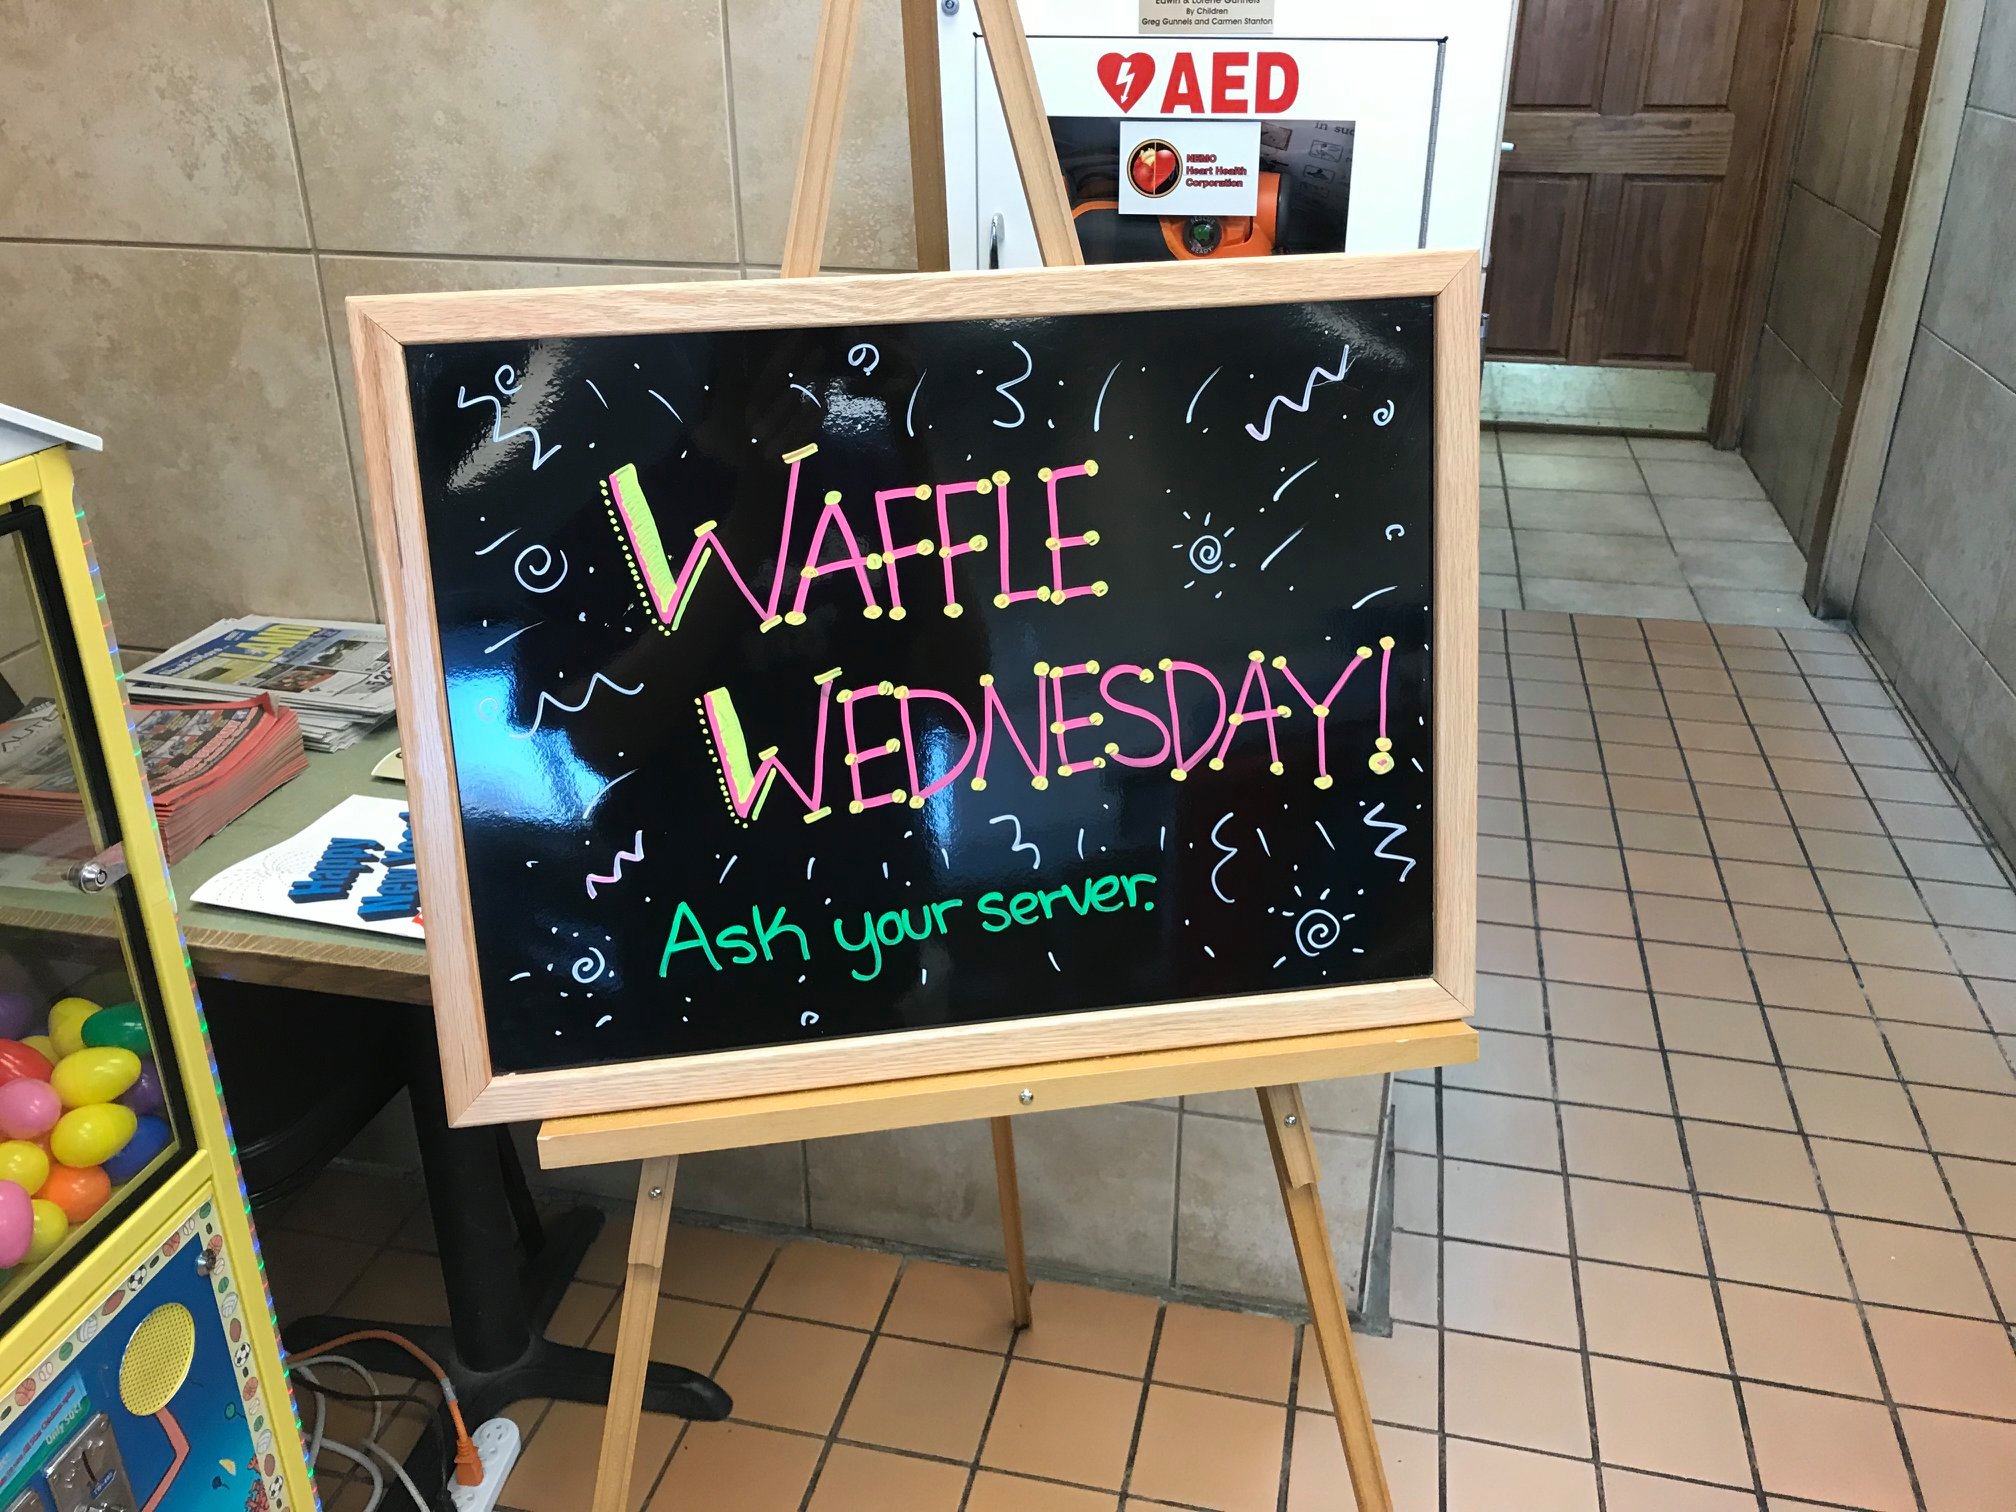 Edwin & Lorene Gunnels
By Children
Greg Gunnels and Carmen Stanton
AED
in suc
NEMO
Heart Health
Corporation
RESCUE
READY
WAFFLE
WEDNESDAY!
Ask your server.
LAND
AUTO
Happy
New Year